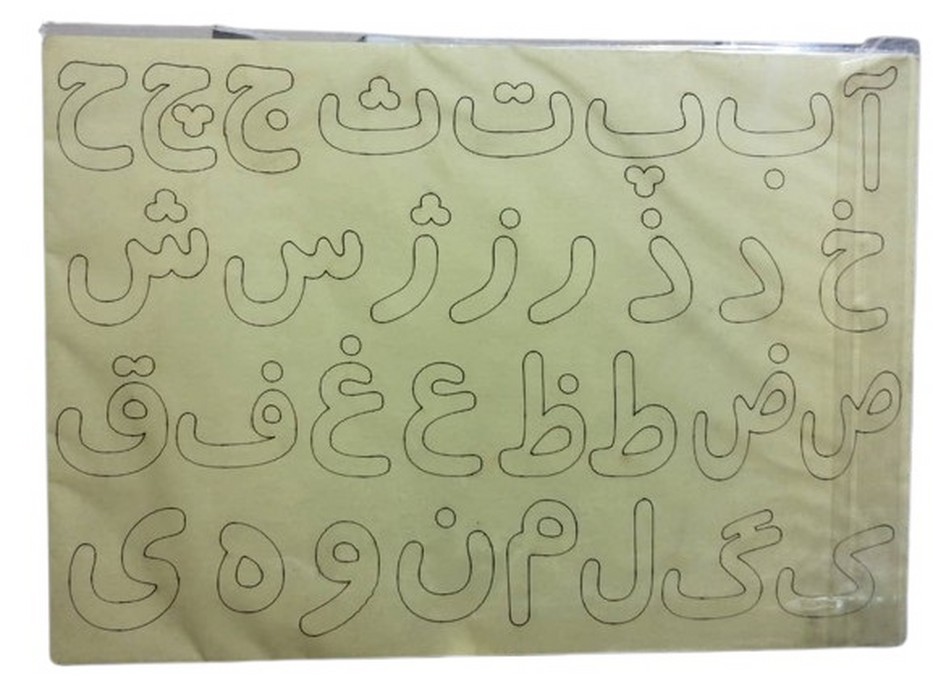 آ ب پ ت ث ج چ ح
خ د ذ ر ز ژ س ش
ص ض ط ظ ع غ ف ق
ک گ ل م ن و ه ی